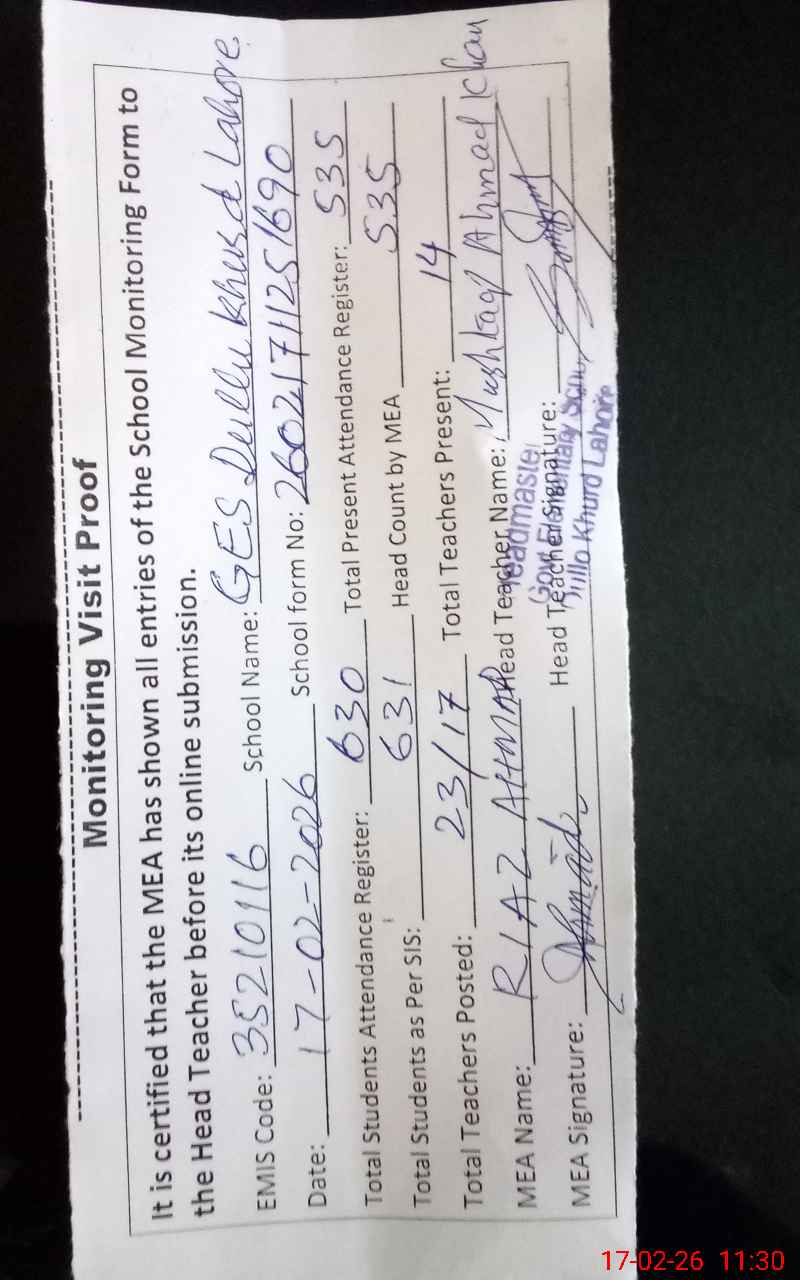 Monitoring Visit Proof
It is certified that the MEA has shown all entries of the School Monitoring Form to
the Head Teacher before its online submission.
EMIS Code: 35210116 School Name: GES Dullu Khurd Lahore.
Date: 17-02-2026 School form No: 26021711251690
Total Students Attendance Register: 630 Total Present Attendance Register: 535
Total Students as Per SIS: 631 Head Count by MEA 535
Total Teachers Posted: 23/17 Total Teachers Present: 14
MEA Name: RIAZ AHMAD Head Teacher Name: Mushtaq Ahmad Khan
MEA Signature: Ahmad Head Teacher Signature:
Headmaster
Govt Elementary
Dillo Khurd Lahore
17-02-26 11:30